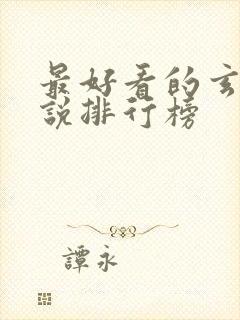 最好看的玄
說排行榜
譚永